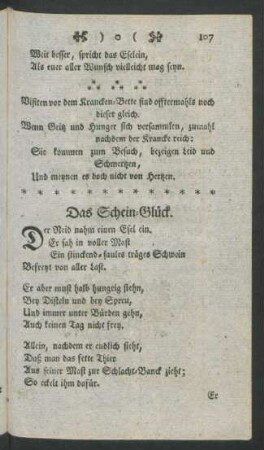 ) o (
107
Weit besser, spricht das Eselein,
Als euer aller Wunsch vielleicht mag seyn.
* * * * *
Visiten vor dem Krancken-Bette sind offtermahls noch
dieser gleich.
Wenn Geitz und Hunger sich versammlen, zumahl
nachdem der Krancke reich:
Sie kommen zum Besuch, bezeigen leid und
Schmertzen,
Und meynen es doch nicht von Hertzen.
* * * * * * * * * * * * * * *
Das Schein-Glück.
Der Neid nahm einen Esel ein,
Er sah in voller Mast
Ein stinckend-faules träges Schwein
Befreyt von aller Last.
Er aber must halb hungrig stehn,
Bey Disteln und bey Spreu,
Und immer unter Bürden gehn,
Auch keinen Tag nicht frey.
Allein, nachdem er endlich sieht,
Daß man das fette Thier
Aus seiner Mast zur Schlacht-Banck zieht;
So eckelt ihm dafür.
Er